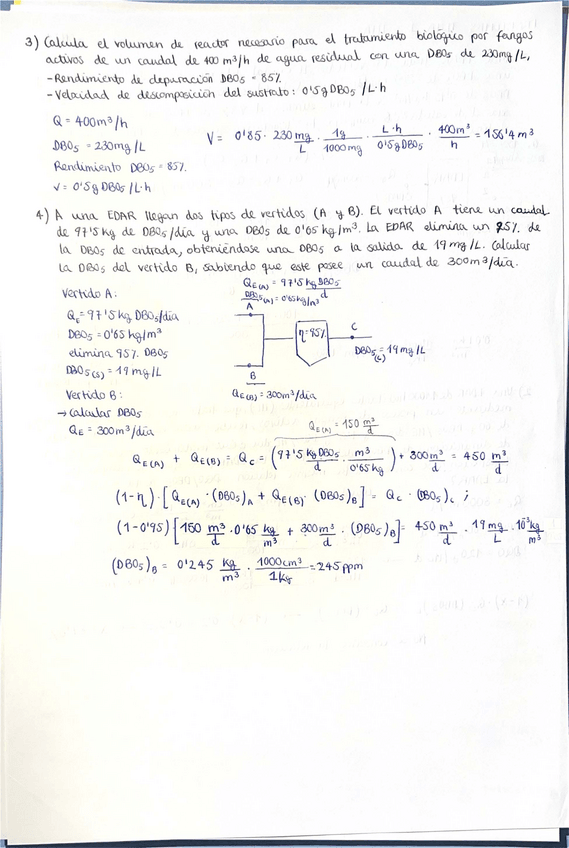 3) Calcula el volumen de reactor necesario para el tratamiento biológico por fangos
activos de un caudal de 400 m³/h de agua residual con una DBO5 de 230mg/L,
- Rendimiento de depuración DBO5 = 85%
- Velocidad de descomposición del sustrato: 0'5g DBO5 /L·h
Q = 400m³/h
DBO5 = 230mg/L
Rendimiento DBO5 = 85%.
V = 0'5g DBO5/L·h
V = 0'85 · 230 mg/L · 1g/1000mg · L·h/0'5gDBO5 · 400m³/h = 156'4 m³
4) A una EDAR llegan dos tipos de vertidos (A y B). El vertido A tiene un caudal
de 97'5 kg de DBO5/día y una DBO5 de 0'65 kg/m³. La EDAR elimina un 95%. de
la DBO5 de entrada, obteniéndose una DBO5 a la salida de 19 mg/L. Calcular
la DBO5 del vertido B, sabiendo que este posee un caudal de 300m³/día.
Vertido A:
QE = 97'5 kg DBO5/día
DBO5 = 0'65 kg/m³
elimina 95%. DBO5
DBO5(S) = 19 mg/L
Vertido B:
→ calcular DBO5
QE = 300m³/día
QE(A) = 97'5 kg DBO5/d
DBO5(A) = 0'65kg/m³
A
η=95%
C
DBO5(C) = 19 mg/L
B
QE(B) = 300m³/día
QE(A) = 150 m³/d
QE(A) + QE(B) = QC = (97'5 kg DBO5/d · m³/0'65 kg) + 300 m³/d = 450 m³/d
(1-η) · [QE(A) · (DBO5)A + QE(B) · (DBO5)B] = QC · (DBO5)C ;
(1-0'95) [150 m³/d · 0'65 kg/m³ + 300 m³/d · (DBO5)B] = 450 m³/d · 19 mg/L · 10⁻³ kg/m³
(DBO5)B = 0'245 kg/m³ · 1000cm³/1kg = 245 ppm